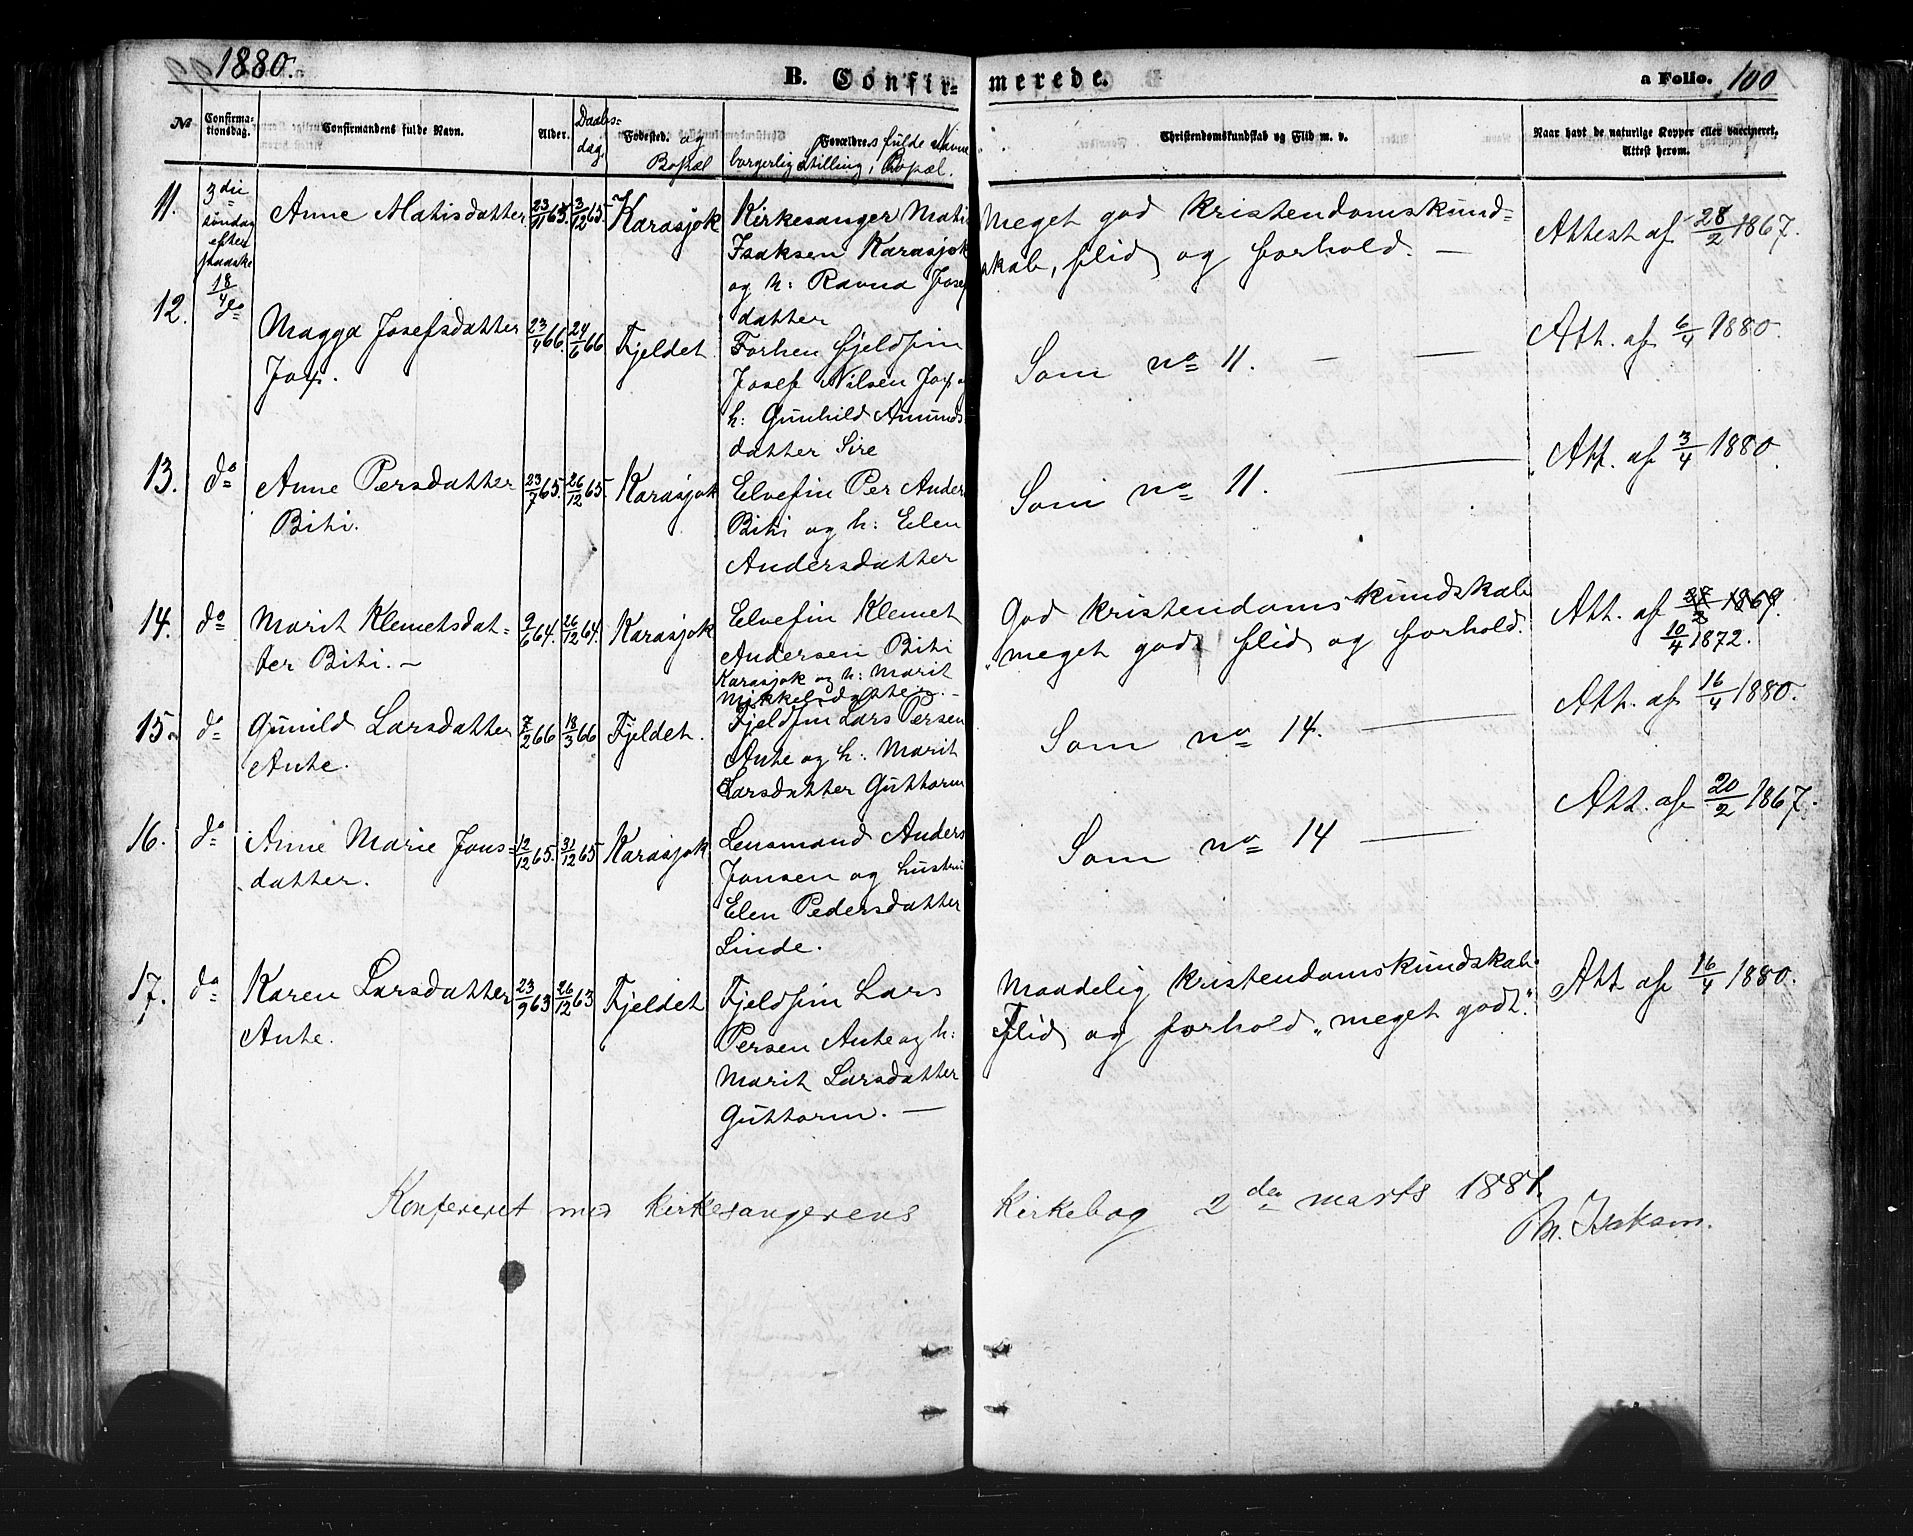 1880.
B. Confirmerede.
a Folio. 100
No
Confirmationsdag.
Confirmandens fulde Navn.
Alder.
Daabsdag.
Fødested. og Bopæl
Forældres fulde Navne borgerlig stilling, Bopæl.
Christendomskundskab og Flid m. v.
Naar havt de naturlige Kopper eller vaccineret, Attest herom.
11.
3die
søndag
efter
paaske
18/4
Anne Matisdatter
23/11 65.
3/12 65.
Karasjok
Kirkesanger Matis
Isaksen Karasjok
og h: Ravna Josef
datter
Meget god kristendomskund=
skab, flid og forhold. —
Attest af 28/2 1867.
12.
do
Magga Josefsdatter
Jox.
23/4 66.
24/6 66
Fjeldet.
Forhen fjeldfin
Josef Nilsen Jox og
h: Gunhild Amunds
datter Sire
Som no 11. — —
Att. af 6/4 1880.
13.
do
Anne Persdatter
Biti.
23/7 65.
26/12 65.
Karasjok
Elvefin Per Anders
Biti og h: Elen
Andersdatter
Som no 11. —
Att. af 3/4 1880.
14.
do
Marit Klemetsdat=
ter Biti. —
9/6 64.
26/12 64.
Karasjok
Elvefin Klemet
Andersen Biti
Karasjok og h: Marit
Mikkelsdatter. —
God kristendomskundskab
"meget god" flid og forhold.
Att. af 28/2 1869.
10/4 1872.
15.
do
Gunild Larsdatter
Ante.
7/2 66
18/3 66
Fjeldet.
Fjeldfin Lars Persen
Ante og h: Marit
Larsdatter Guttorm
Som no 14. —
Att. af 16/4 1880.
16.
do
Anne Marie Jons=
datter.
12/12 65.
31/12 65
Karasjok
Lensmand Anders
Jonsen og hustru
Elen Pedersdatter
Linde.
Som no 14 —
Att. af 20/2 1867.
17.
do
Karen Larsdatter
Ante.
23/9 63
26/12 63
Fjeldet
Fjeldfin Lars
Persen Ante og h:
Marit Larsdatter
Guttorm. —
Maadelig kristendomskundskab
Flid og forhold "meget godt".
Att af 16/4 1880.
Konfereret med kirkesangerens Kirkebog 2den marts 1881.
M. Isaksen.